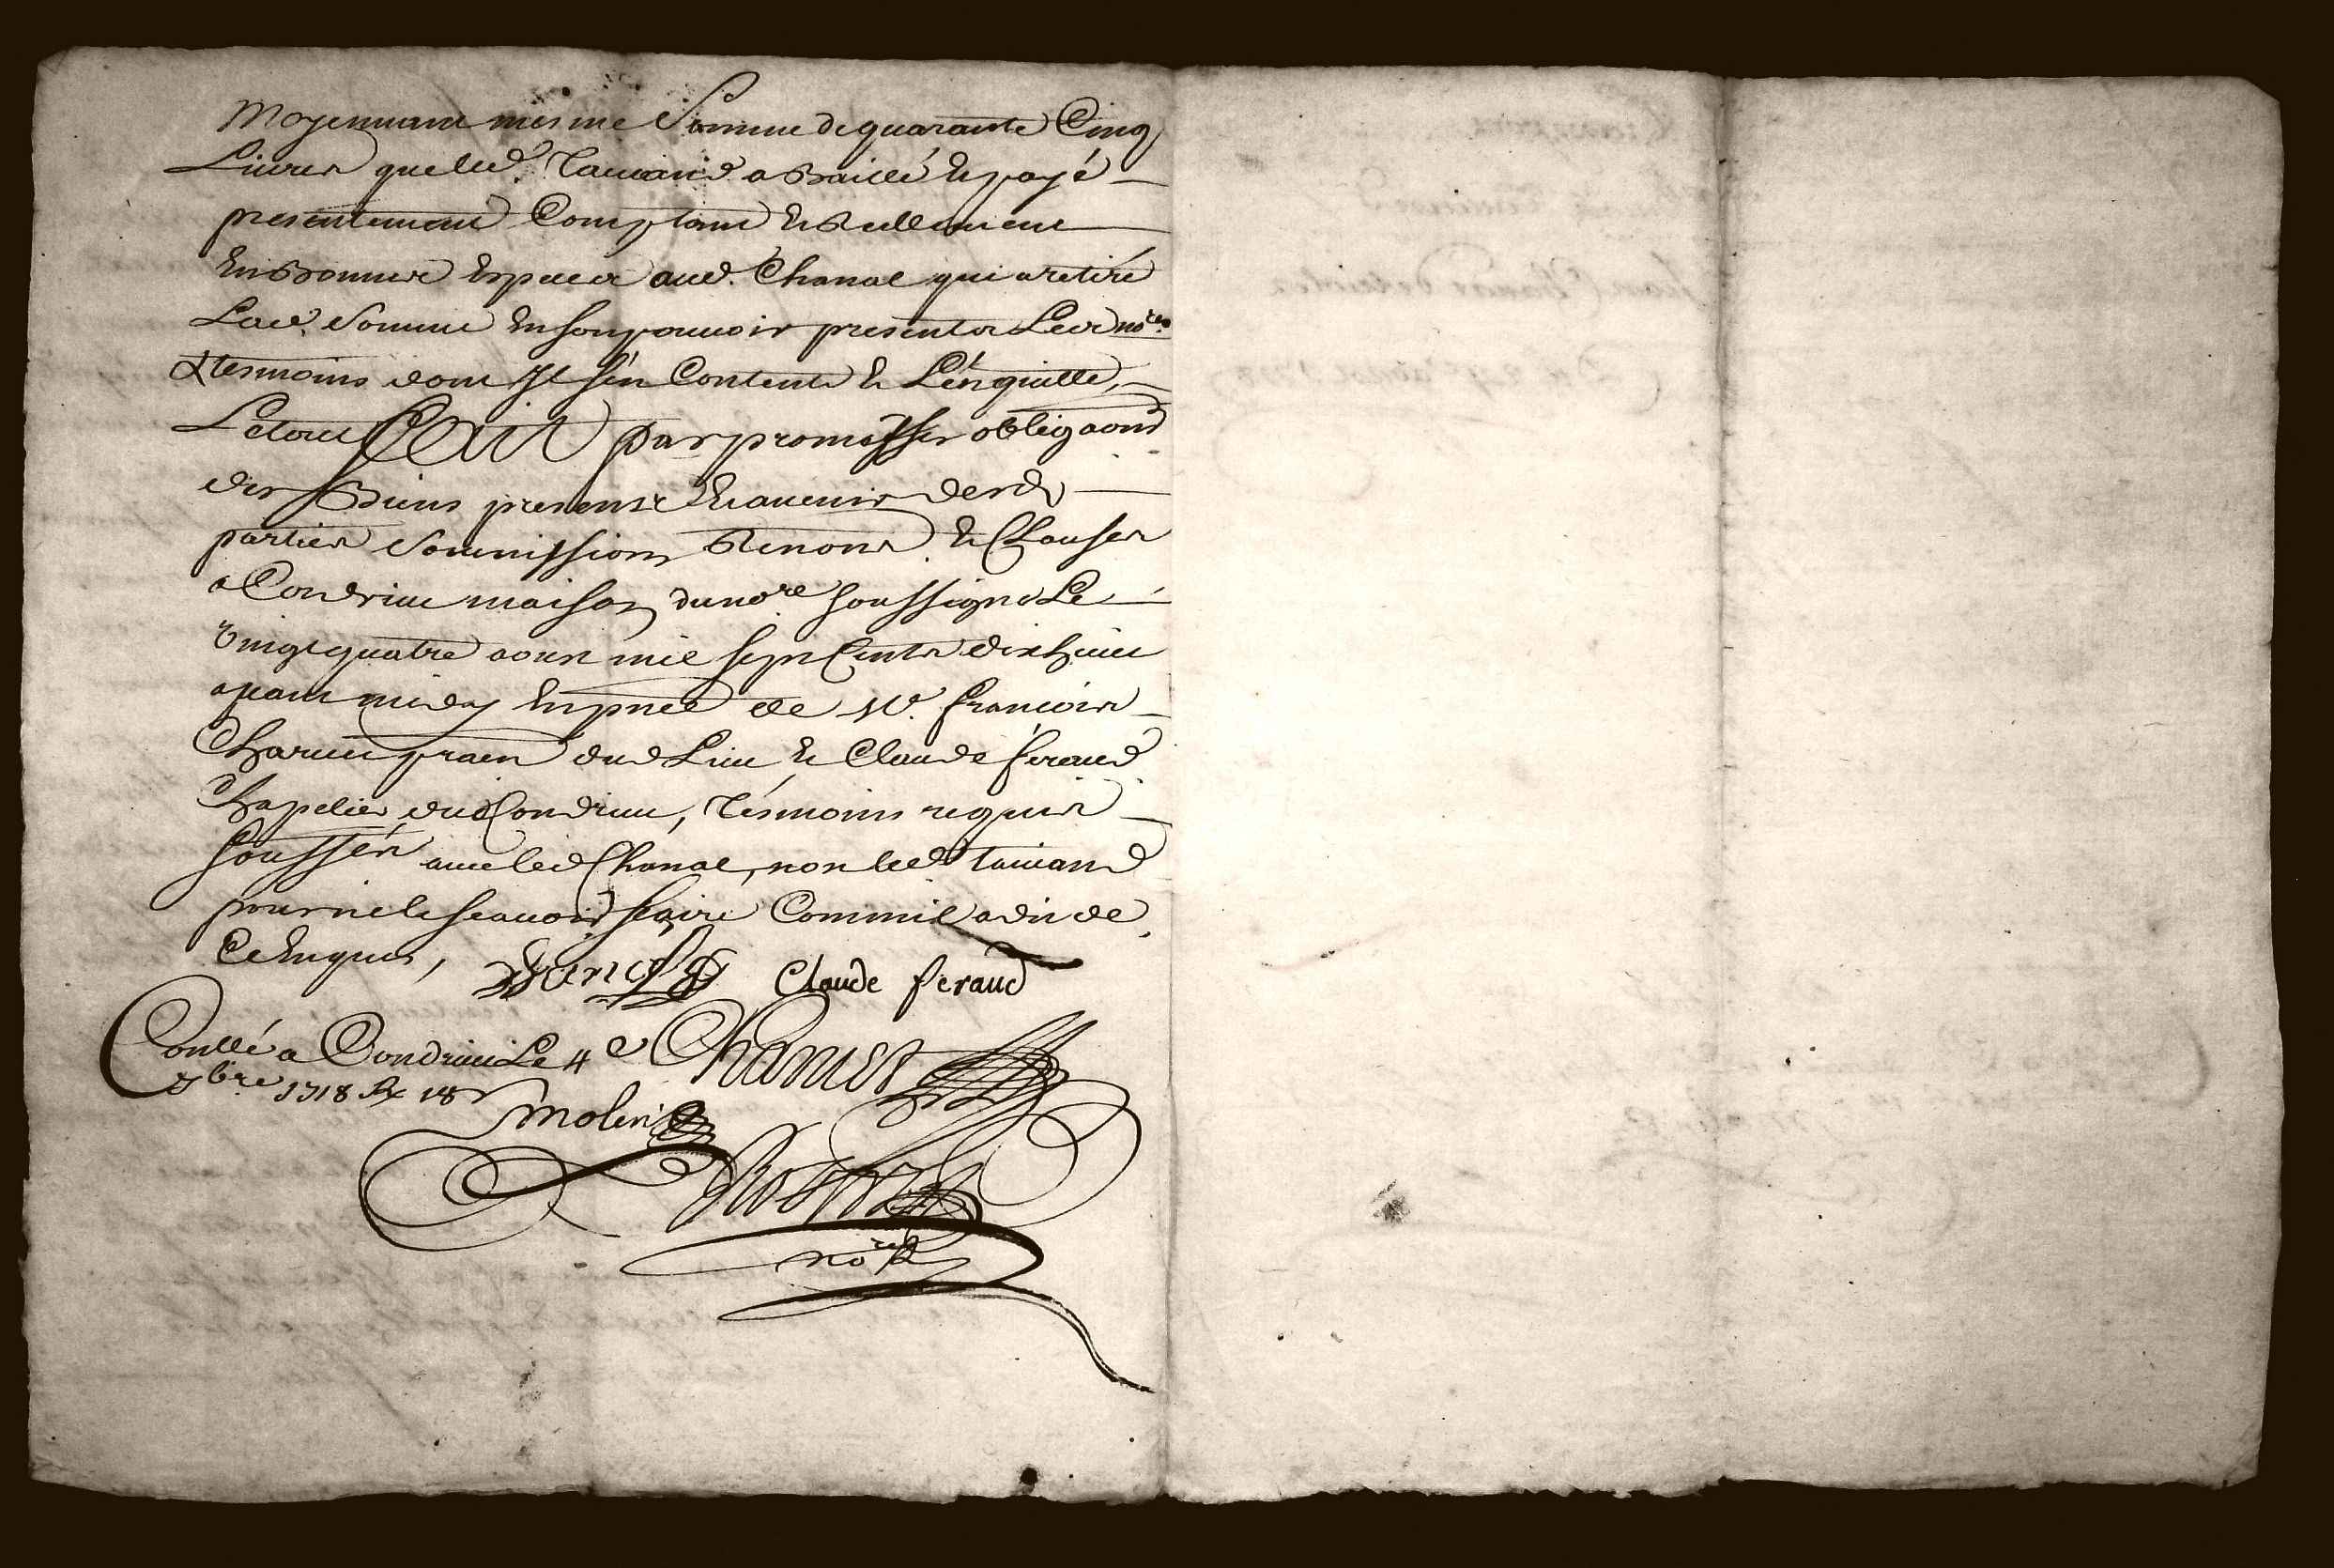 Moyennant mesme Somme de quarante Cinq
Livres que led. Taviand a Baillé & payé
presentement Comptant & Reellement
En Bonnes Especes aud. Chanal qui a retiré
Lad. Somme En son pouvoir presents Led nore
& tesmoins dont Il s'en Contente & L'en quitte,
Le tout fait par promesses obligaons
des Biens presens & avenir desd
parties Soumissions Renons & Clauses
a Condrieu maison du nore soussigné Le
vingt quatre aoust mil sept Cents dix huict
apant midy En pnce de Me. francois
prain dud Lieu & Claude feraud
Chapelier dud Condrieu, Tésmoins requis
soussnés avec led Chanal, non led Taviand
pour ne le scavoir faire Comme il a dit de
Ce Enquis,
Claude feraud
Conllé a Condrieu Le 4e
7bre 1718 Rx 18s
molin
nore